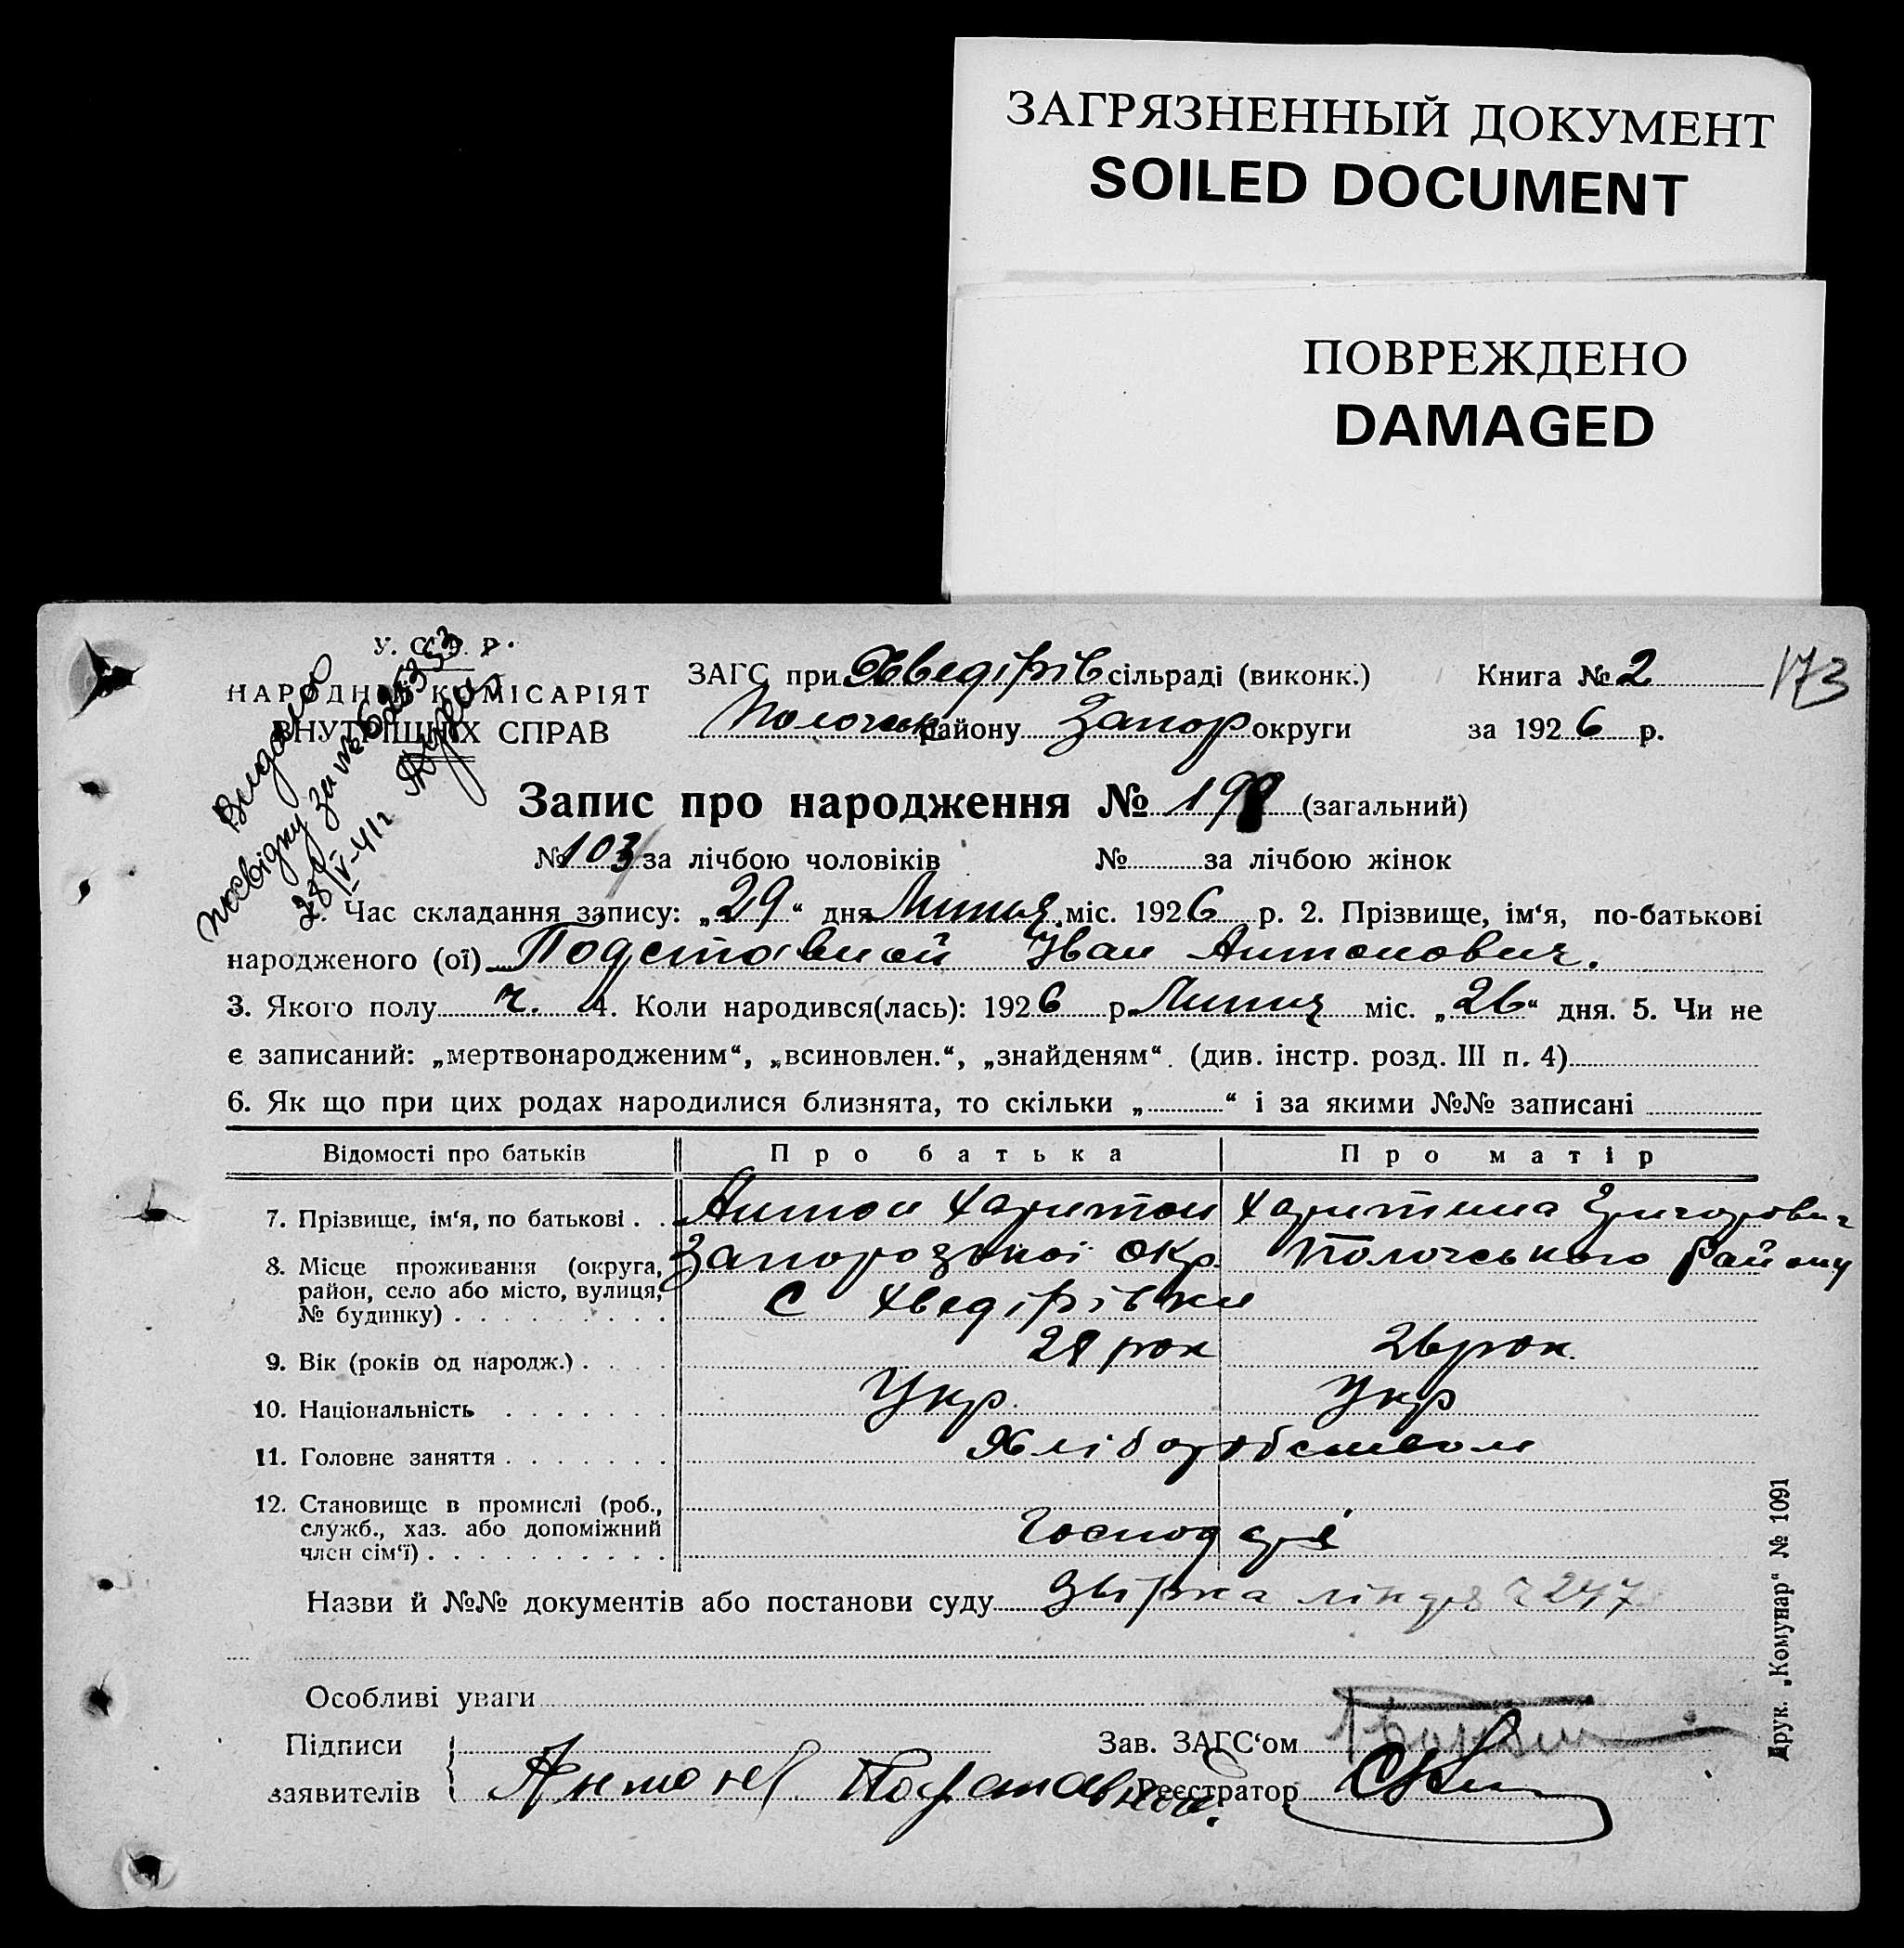 ЗАГРЯЗНЕННЫЙ ДОКУМЕНТ
SOILED DOCUMENT
ПОВРЕЖДЕНО
DAMAGED
У. С. Р. Р.
НАРОДНІЙ КОМІСАРІЯТ
ВНУТРІШНІХ СПРАВ
Видано
посвідку за №
28/V-41 г
ЗАГС при Хведірів сільраді (виконк.) Книга № 2 173
Пологськ району Запор округи за 1926 р.
Запис про народження № 199 (загальний)
№ 103 за лічбою чоловіків № за лічбою жінок
1. Час складання запису: „29“ дня Липня міс. 1926 р. 2. Прізвище, ім‘я, по-батькові
народженого (ої) Подставной Іван Антонович.
3. Якого полу ч. 4. Коли народився(лась): 1926 р. Липня міс. „26“ дня. 5. Чи не
є записаний: „мертвонародженим“, „всиновлен.“, „знайденям“. (див. інстр. розд. III п. 4)
6. Як що при цих родах народилися близнята, то скільки „ “ і за якими №№ записані
Відомості про батьків Про батька Про матір
7. Прізвище, ім‘я, по батькові . . Антон Харитон Харитина Григорович
8. Місце проживання (округа, Запорозької окр. Пологського Району
район, село або місто, вулиця, с Хведірівки
№ будинку) . . . . . . . . .
9. Вік (років од народж.) . . . . 28 рок 26 рок.
10. Національність . . . . . . . Укр. Укр
11. Головне заняття . . . . . . . Хліборобством
12. Становище в промислі (роб.,
служб., хаз. або допоміжний Господарі
член сім‘ї) . . . . . . . . . .
Назви й №№ документів або постанови суду Збірка 247
Особливі уваги
Підписи Зав. ЗАГС‘ом
заявителів Антон Подставной. Реєстратор
Друк. „Комунар“ № 1091